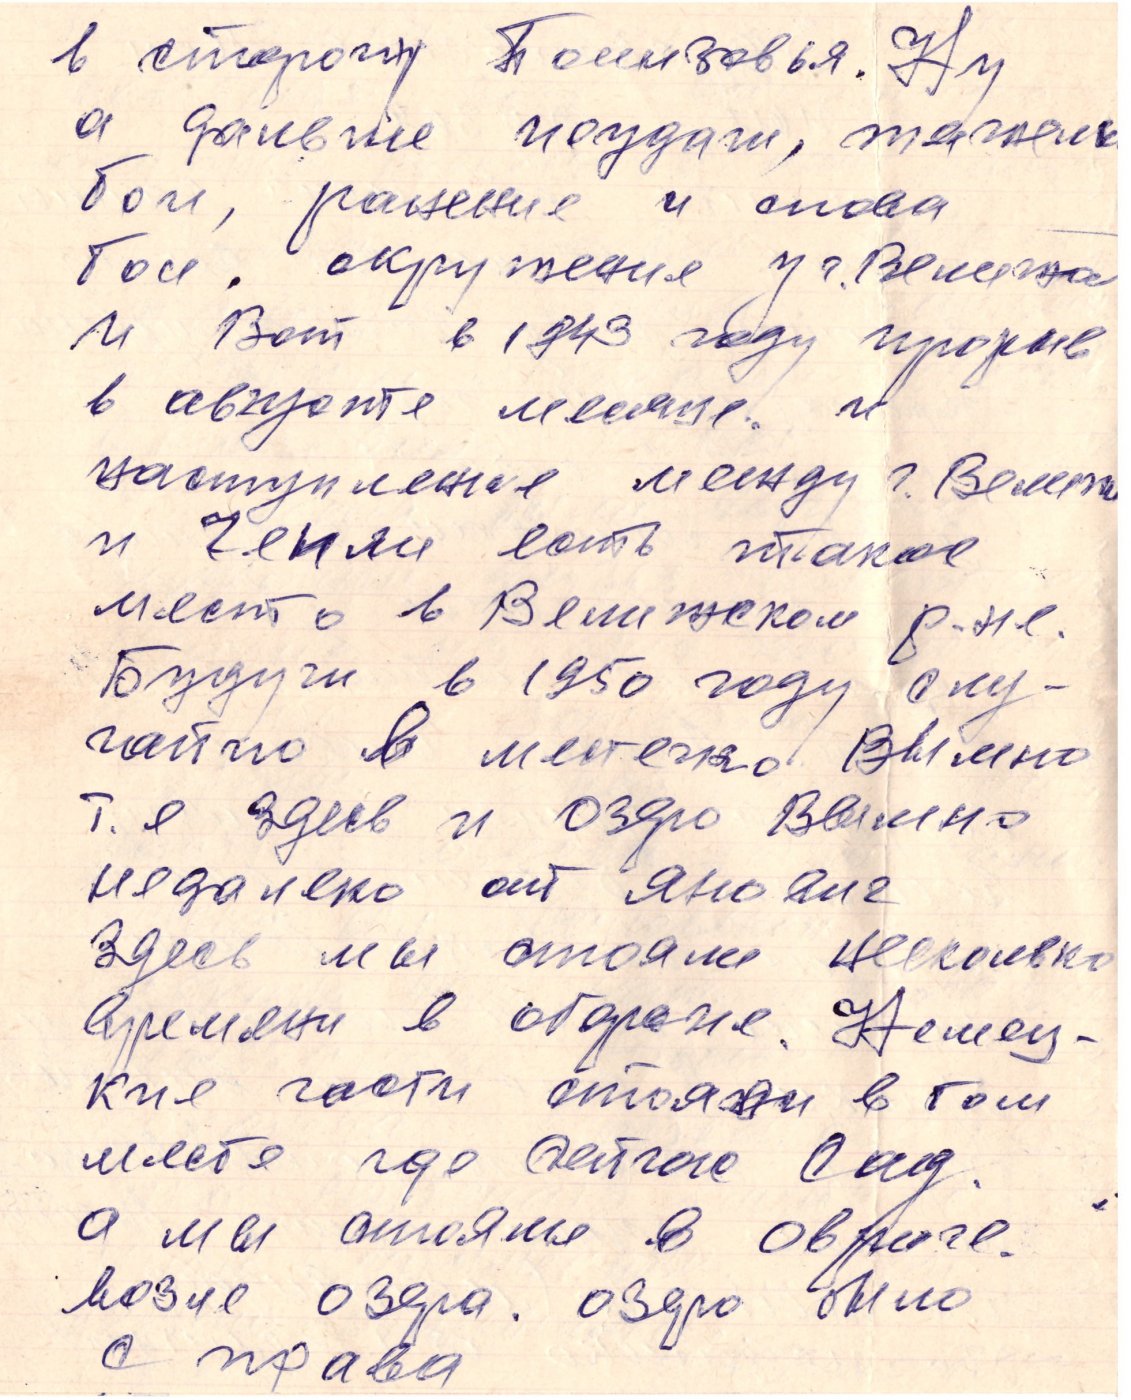 в сторону Понизовья. Ну
а дальше неудачи, тяжелы
бои, ранение и снова
бои. окружения у г. Велижа
И Вот в 1943 году прорыв
в августе месяце. и
наступление между г. Велиж
и есть такое
место в Велижском р-не.
Будучи в 1950 году слу-
чайно в местечко Вымно
т.е здесь и оздро Вымно
недалеко от Янович
Здесь мы стояли несколько
времяни в обороне. Немец-
кие части стояли в том
месте где сейчас Сад.
а мы стояли в овраге.
возле оздра. оздро было
с права